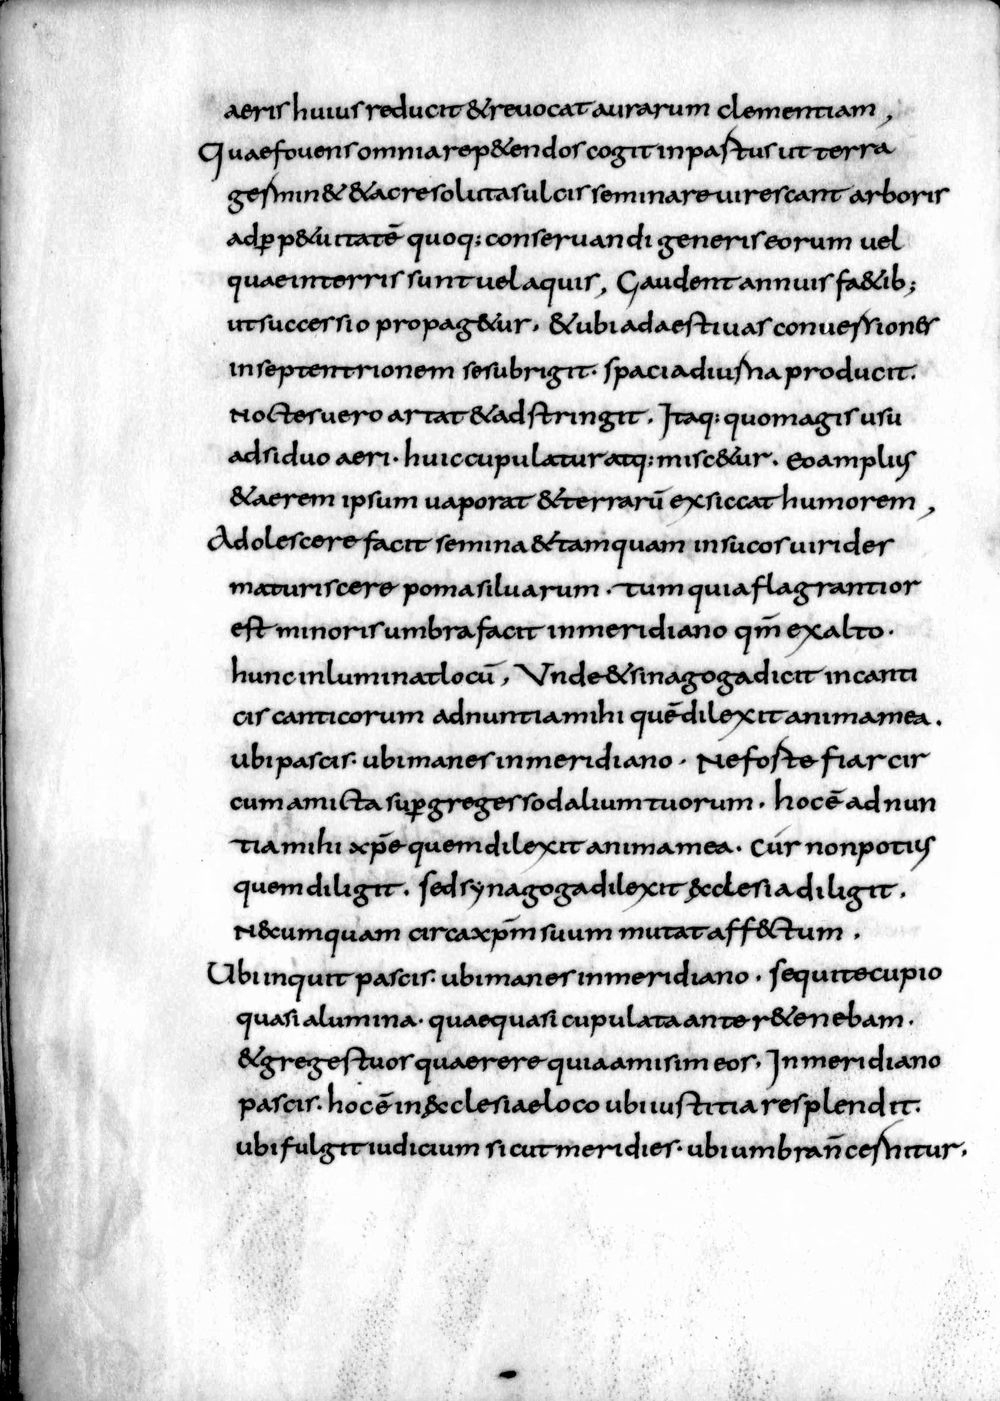 aeris huius reducit & reuocat aurarum clementiam,
Quae fouens omnia rep&endos cogit in pastus ut terra
germin& & acre soluta sulcis seminare uirescant arboris
ad p̲p&uitatē quoq; conseruandi generis eorum uel
quae in terris sunt uel aquis, Gaudent annuis fa&ib;
ut successio propag&ur. & ubi ad aestiuas conuersiones
in septentrionem se subrigit. spacia diurna producit.
Noctes uero artat & adstringit. Itaq; quo magis usu
adsiduo aeri. huic cupulatur atq; misc&ur. eo amplius
& aerem ipsum uaporat & terrarū exsiccat humorem,
Adolescere facit semina & tamquam in sucos uirides
maturiscere poma siluarum. tum quia flagrantior
est minoris umbra facit in meridiano qm̄ ex alto.
hunc inluminat locū, Vnde & sinagoga dicit in canti
cis canticorum adnuntia mihi quē dilexit anima mea.
ubi pascis. ubi manes in meridiano. Ne foste fiar cir
cum amicta sup̲ greges sodalium tuorum. hoc ē adnun
tia mihi xp̄e quem dilexit anima mea. Cúr non potius
quem diligit. sed synagoga dilexit &cclesia diligit.
N&cumquam circa xp̄m suum mutat aff&ctum.
Ubi inquit pascis. ubi manes in meridiano. sequi te cupio
quasi alumina. quae quasi cupulata ante r&enebam.
& greges tuos quaerere quia amisim eos. In meridiano
pascis. hoc ē in &cclesiae loco ubi iustitia resplendit.
ubi fulgit iudicium sicut meridies. ubi umbra n̄ cernitur.